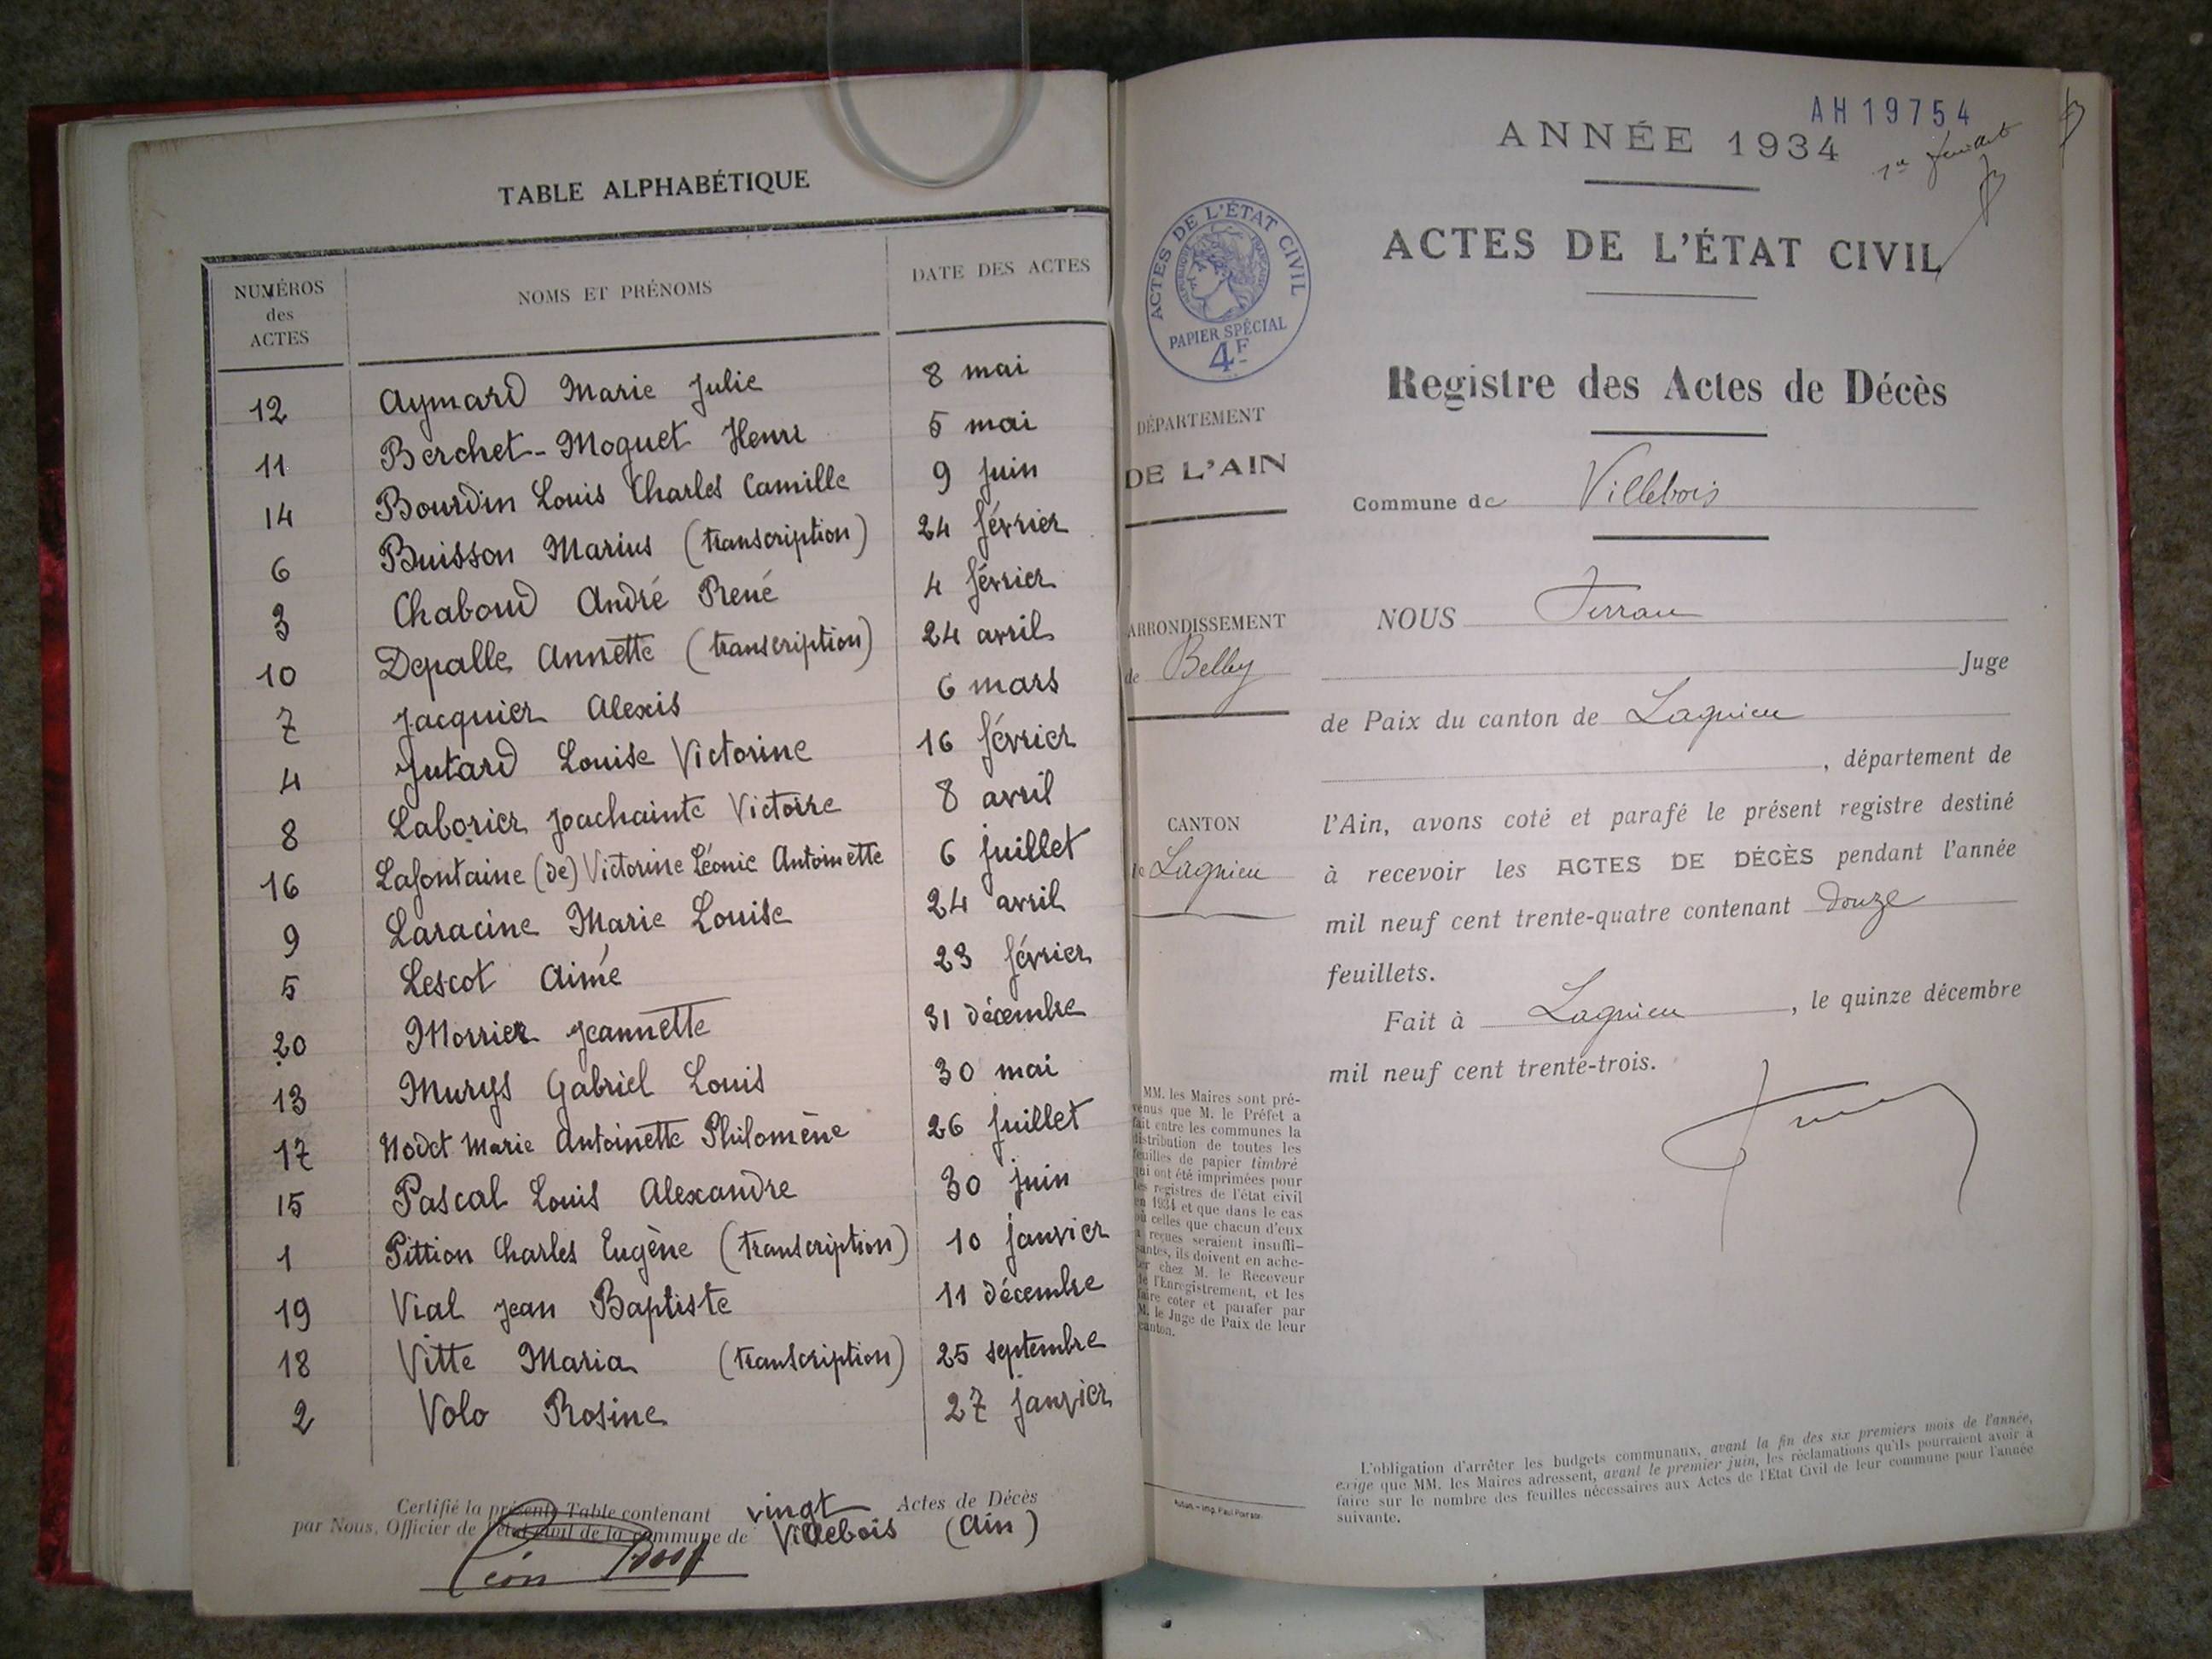 TABLE ALPHABÉTIQUE
NUMÉROS des ACTES NOMS ET PRÉNOMS DATE DES ACTES
12 Aymard Marie Julie 8 mai
11 Berchet-Moguet Henri 5 mai
14 Bourdin Louis Charles Camille 9 juin
6 Buisson Marius (transcription) 24 février
3 Chaboud André René 4 février
10 Depalle Annette (transcription) 24 avril
7 Jacquier Alexis 6 mars
4 Jutard Louise Victorine 16 février
8 Laborier Joachainte Victoire 8 avril
16 Lafontaine (de) Victorine Léonie Antoinette 6 juillet
9 Laracine Marie Louise 24 avril
5 Lescot Aimé 23 février
20 Morrier Jeannette 31 décembre
13 Murys Gabriel Louis 30 mai
17 Nodet Marie Antoinette Philomène 26 juillet
15 Pascal Louis Alexandre 30 juin
1 Pittion Charles Eugène (transcription) 10 janvier
19 Vial Jean Baptiste 11 décembre
18 Vitte Maria (transcription) 25 septembre
2 Volo Rosine 27 janvier
Certifié la présente Table contenant vingt Actes de Décès
par Nous, Officier de l'état civil de la commune de Villebois (Ain)
AH19754
ANNÉE 1934
1er feuillet
ACTES DE L'ÉTAT CIVIL
ACTES DE L'ÉTAT CIVIL
RÉPUBLIQUE FRANÇAISE
PAPIER SPÉCIAL
4F
Registre des Actes de Décès
DÉPARTEMENT
DE L'AIN
Commune de Villebois
ARRONDISSEMENT
de Belley
CANTON
de Lagnieu
NOUS
Juge
de Paix du canton de Lagnieu
, département de
l'Ain, avons coté et parafé le présent registre destiné
à recevoir les ACTES DE DÉCÈS pendant l'année
mil neuf cent trente-quatre contenant douze
feuillets.
Fait à Lagnieu, le quinze décembre
mil neuf cent trente-trois.
MM. les Maires sont pré-
venus que M. le Préfet a
fait entre les communes la
distribution de toutes les
feuilles de papier timbré
qui ont été imprimées pour
les registres de l'état civil
en 1934 et que dans le cas
où celles que chacun d'eux
a reçues seraient insuffi-
santes, ils doivent en ache-
ter chez M. le Receveur
de l'Enregistrement, et les
faire coter et parafer par
M. le Juge de Paix de leur
canton.
L'obligation d'arrêter les budgets communaux, avant la fin des six premiers mois de l'année,
exige que MM. les Maires adressent, avant le premier juin, les réclamations qu'ils pourraient avoir à
faire sur le nombre des feuilles nécessaires aux Actes de l'Etat Civil de leur commune pour l'année
suivante.